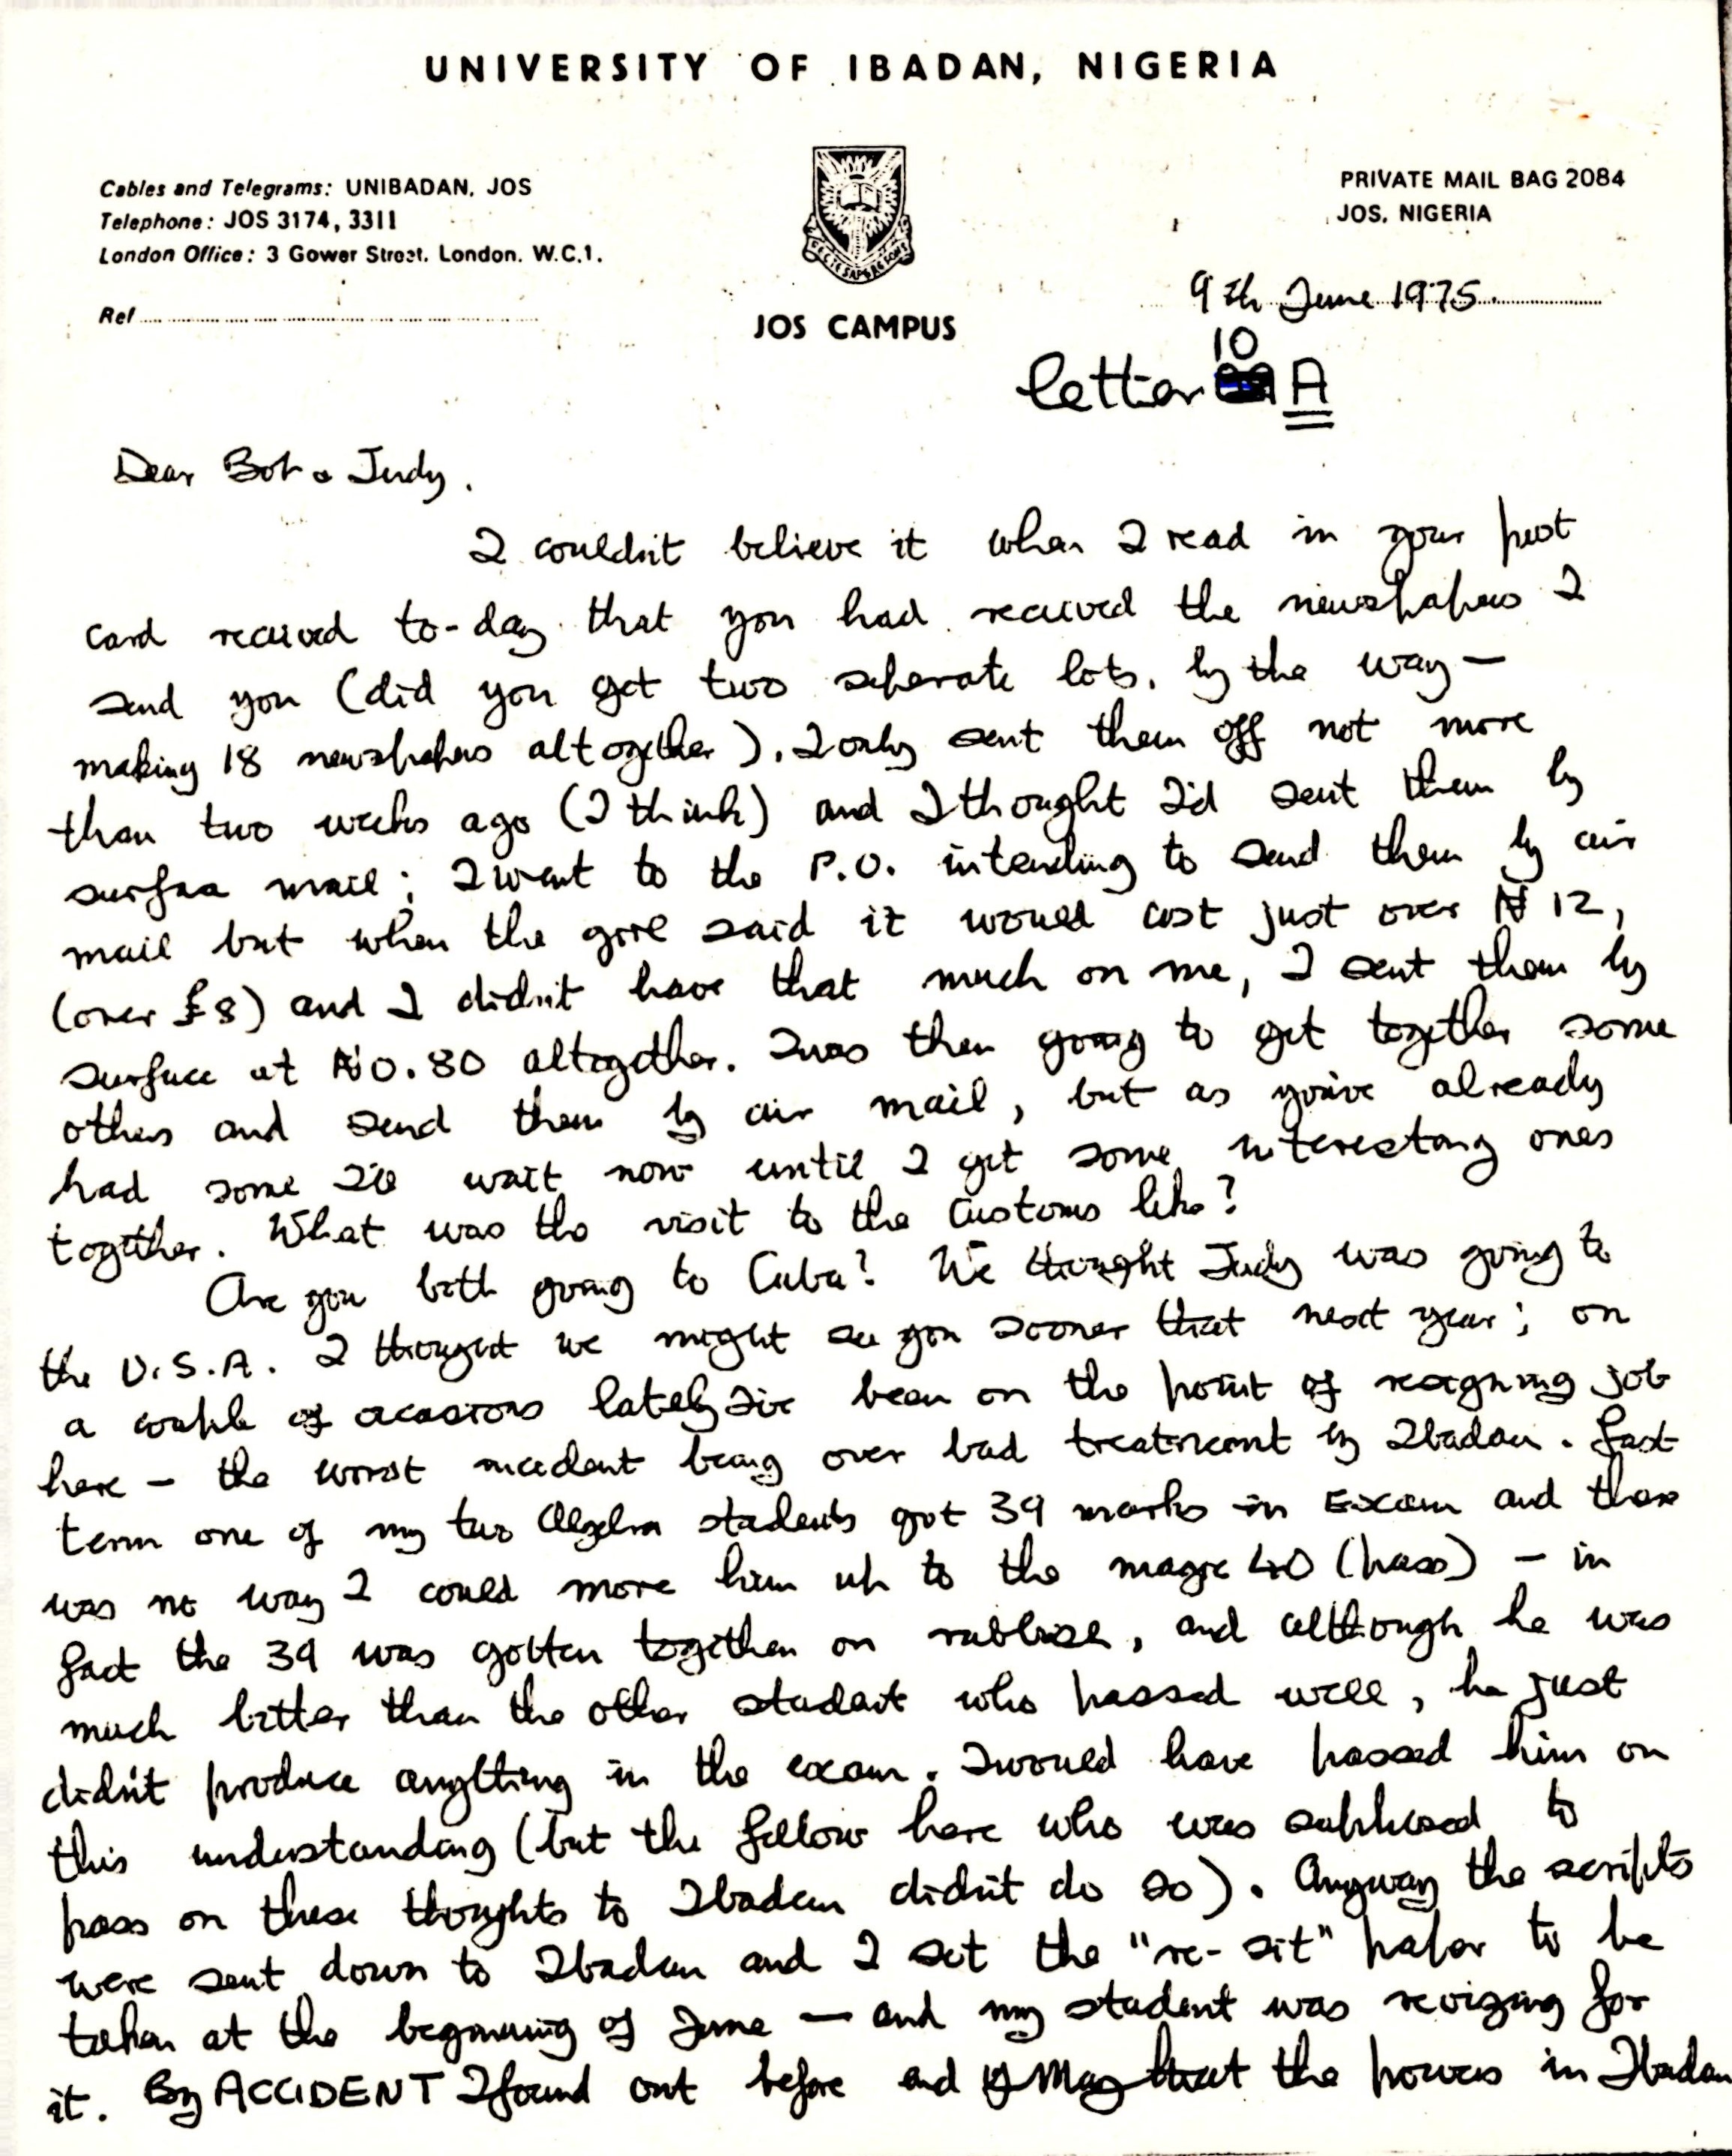 UNIVERSITY OF IBADAN, NIGERIA
Cables and Telegrams: UNIBADAN, JOS
Telephone: JOS 3174, 3311
London Office: 3 Gower Street, London. W.C.1.
Ref
JOS CAMPUS
PRIVATE MAIL BAG 2084
JOS, NIGERIA
9th June 1975.
10
letter A
Dear Bob & Judy,
I couldn't believe it when I read in your post
card received to-day that you had received the newspapers I
send you (did you get two seperate lots, by the way —
making 18 newspapers altogether). I only sent them off not more
than two weeks ago (I think) and I thought I'd sent them by
surface mail; I went to the P.O. intending to send them by air
mail but when the girl said it would cost just over ₦12,
(over £8) and I didn't have that much on me, I sent them by
surface at ₦0.80 altogether. I was then going to get together some
others and send them by air mail, but as you've already
had some I'll wait now until I get some interesting ones
together. What was the visit to the Customs like?
Are you both going to Cuba? We thought Judy was going to
the U.S.A. I thought we might see you sooner that next year; on
a couple of occasions lately I've been on the point of resigning job
here — the worst incident being over bad treatment by Ibadan. Last
term one of my two Algebra students got 39 marks in Exam and there
was no way I could move him up to the magic 40 (pass) — in
fact the 39 was gotten together on rubbish, and although he was
much better than the other student who passed well, he just
didn't produce anything in the exam. I would have passed him on
this understanding (but the fellow here who was supposed to
pass on these thoughts to Ibadan didn't do so). Anyway the scripts
were sent down to Ibadan and I set the "re-sit" paper to be
taken at the beginning of June — and my student was revising for
it. By ACCIDENT I found out before end of May that the powers in Ibadan